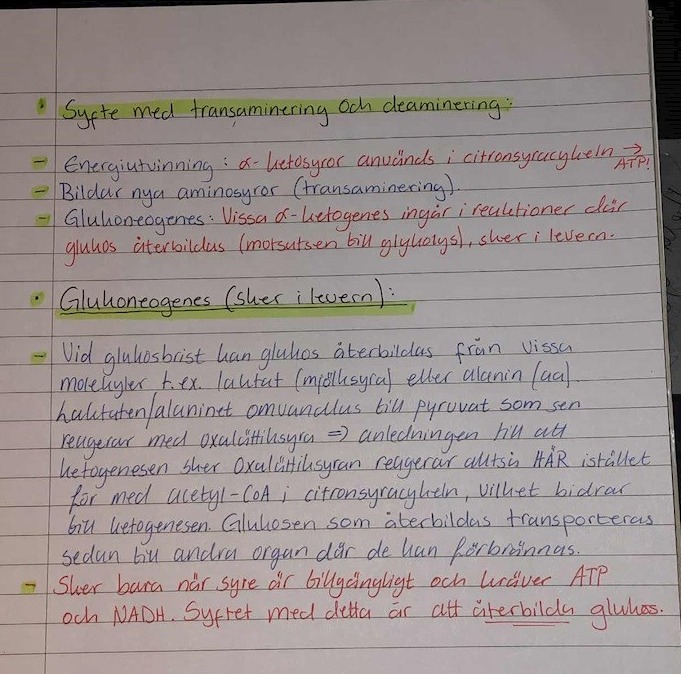 • Syfte med transaminering och deaminering:
- Energiutvinning: α-ketosyror används i citronsyracykeln →
ATP!
- Bildar nya aminosyror (transaminering).
- Glukoneogenes: Vissa α-ketogenes ingår i reaktioner där
glukos återbildas (motsatsen till glykolys), sker i levern.
• Glukoneogenes (sker i levern):
- Vid glukosbrist kan glukos återbildas från vissa
molekyler t.ex. laktat (mjölksyra) eller alanin (aa).
Laktaten/alaninet omvandlas till pyruvat som sen
reagerar med oxalättiksyra => anledningen till att
ketogenesen sker Oxalättiksyran reagerar alltså HÄR istället
för med acetyl-CoA i citronsyracykeln, vilket bidrar
till ketogenesen. Glukosen som återbildas transporteras
sedan till andra organ där de kan förbrännas.
- Sker bara när syre är tillgängligt och kräver ATP
och NADH. Syftet med detta är att återbilda glukos.